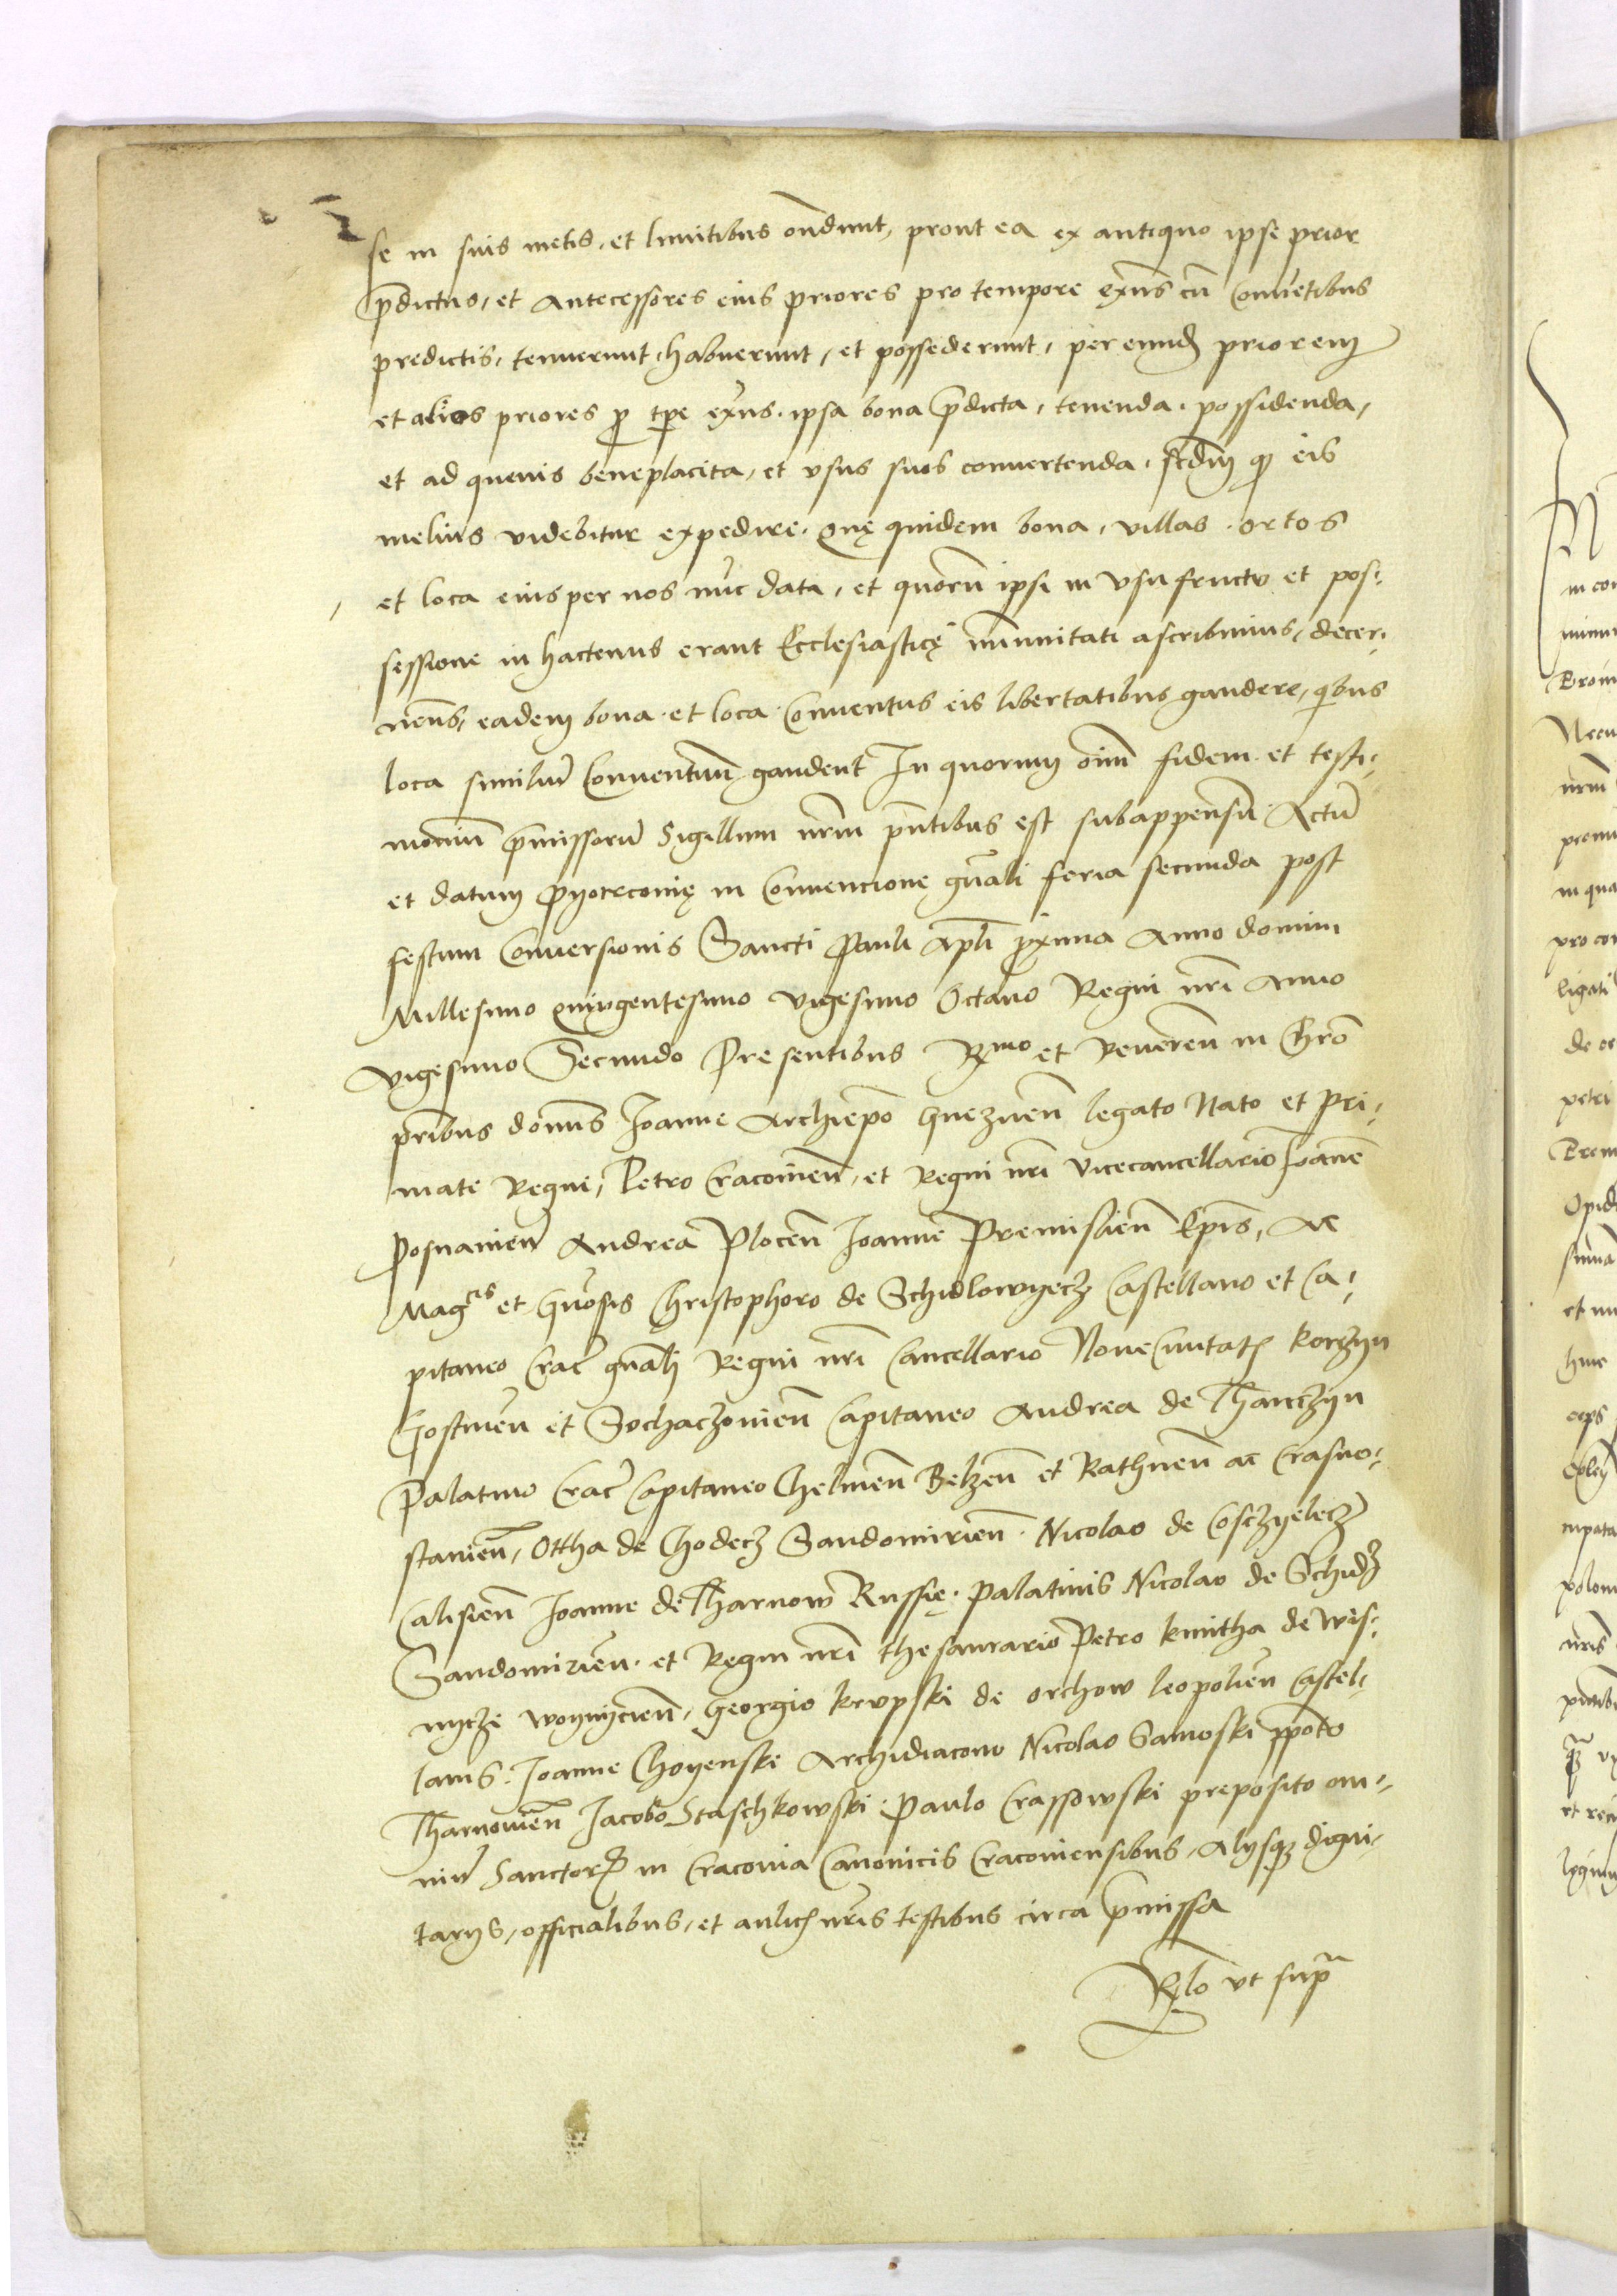 se in suis metis, et limitibus ondunt, prout ea ex antiquo ipse prior
pdictus, et antecessores eius priores pro tempore exns cu Conuetibus
predictis, tenuerunt, habuerunt, et possederunt, per eund priorem
et alios priores p tpe exns. ipsa bona pdicta, tenenda, possidenda,
et ad queuis beneplacita, et vsus suos conuertenda, scdm q eis
melius videbitur expedire. Que quidem bona, villas, ortos
et loca eius per nos nuc data, et quoru ipsi in vsufructu et pos¬
sessione in hactenus erant Ecclesiastice immunitati ascribimus, decer¬
nens, eadem bona, et loca Conuentus eis libertatibus gaudere, qibus
loca similiu Conuentuu gaudent In quorum oim fidem et testi¬
moniu pmissoru Sigillum nrm pntibus est subappensu Actu
et datum Pyotrconie in Conuencione gnali feria secunda post
festum Conuersionis Sancti Pauli Apli pxima Anno domini
Millesimo quingentesimo vigesimo Octauo Regni nri Anno
vigesimo Secundo Presentibus Rmo et Reueren in Chro
pribus donns Ioanne Archiepo Gneznen legato Nato et Pri¬
mate Regni, Petro Cracouien, et Regni nri Vicecancellario Ioane
Posnanien Andrea Plocen Ioanne Premislien Epis, ac
Magcis et Gnosis Christophoro de Schidlowyecz Castellano et Ca¬
pitaneo Crac gnali Regni nri Cancellario Noue Ciuitatis korczyn
Gostinen et Sochaczouien Capitaneo Andrea de Thanczyn
Palatino Crac Capitaneo Chelmen Belzen et Rathnen ac Crasno¬
stauien, Ottha de Chodecz Sandomirien. Nicolao de Cosczyelecz
Calisien Ioanne de Tharnow Russie. Palatinis Nicolao de Schidz
Sandomirien. et Regni nri thesaurario Petro kmitha de Wis¬
nycze woynycien, Georgio krupski de orchow leopolien Castel¬
lanis. Ioanne Choyenski Archidiacono Nicolao Samoski ppoto
Tharnouien Iacobo Staschkowski. Paulo Crassowski preposito om¬
niu Sanctor in Cracouia Canonicis Cracouiensibus, Alysq digni¬
tarys, officialibus, et aulicis nris testibus circa pmissa
Rlo vt supra